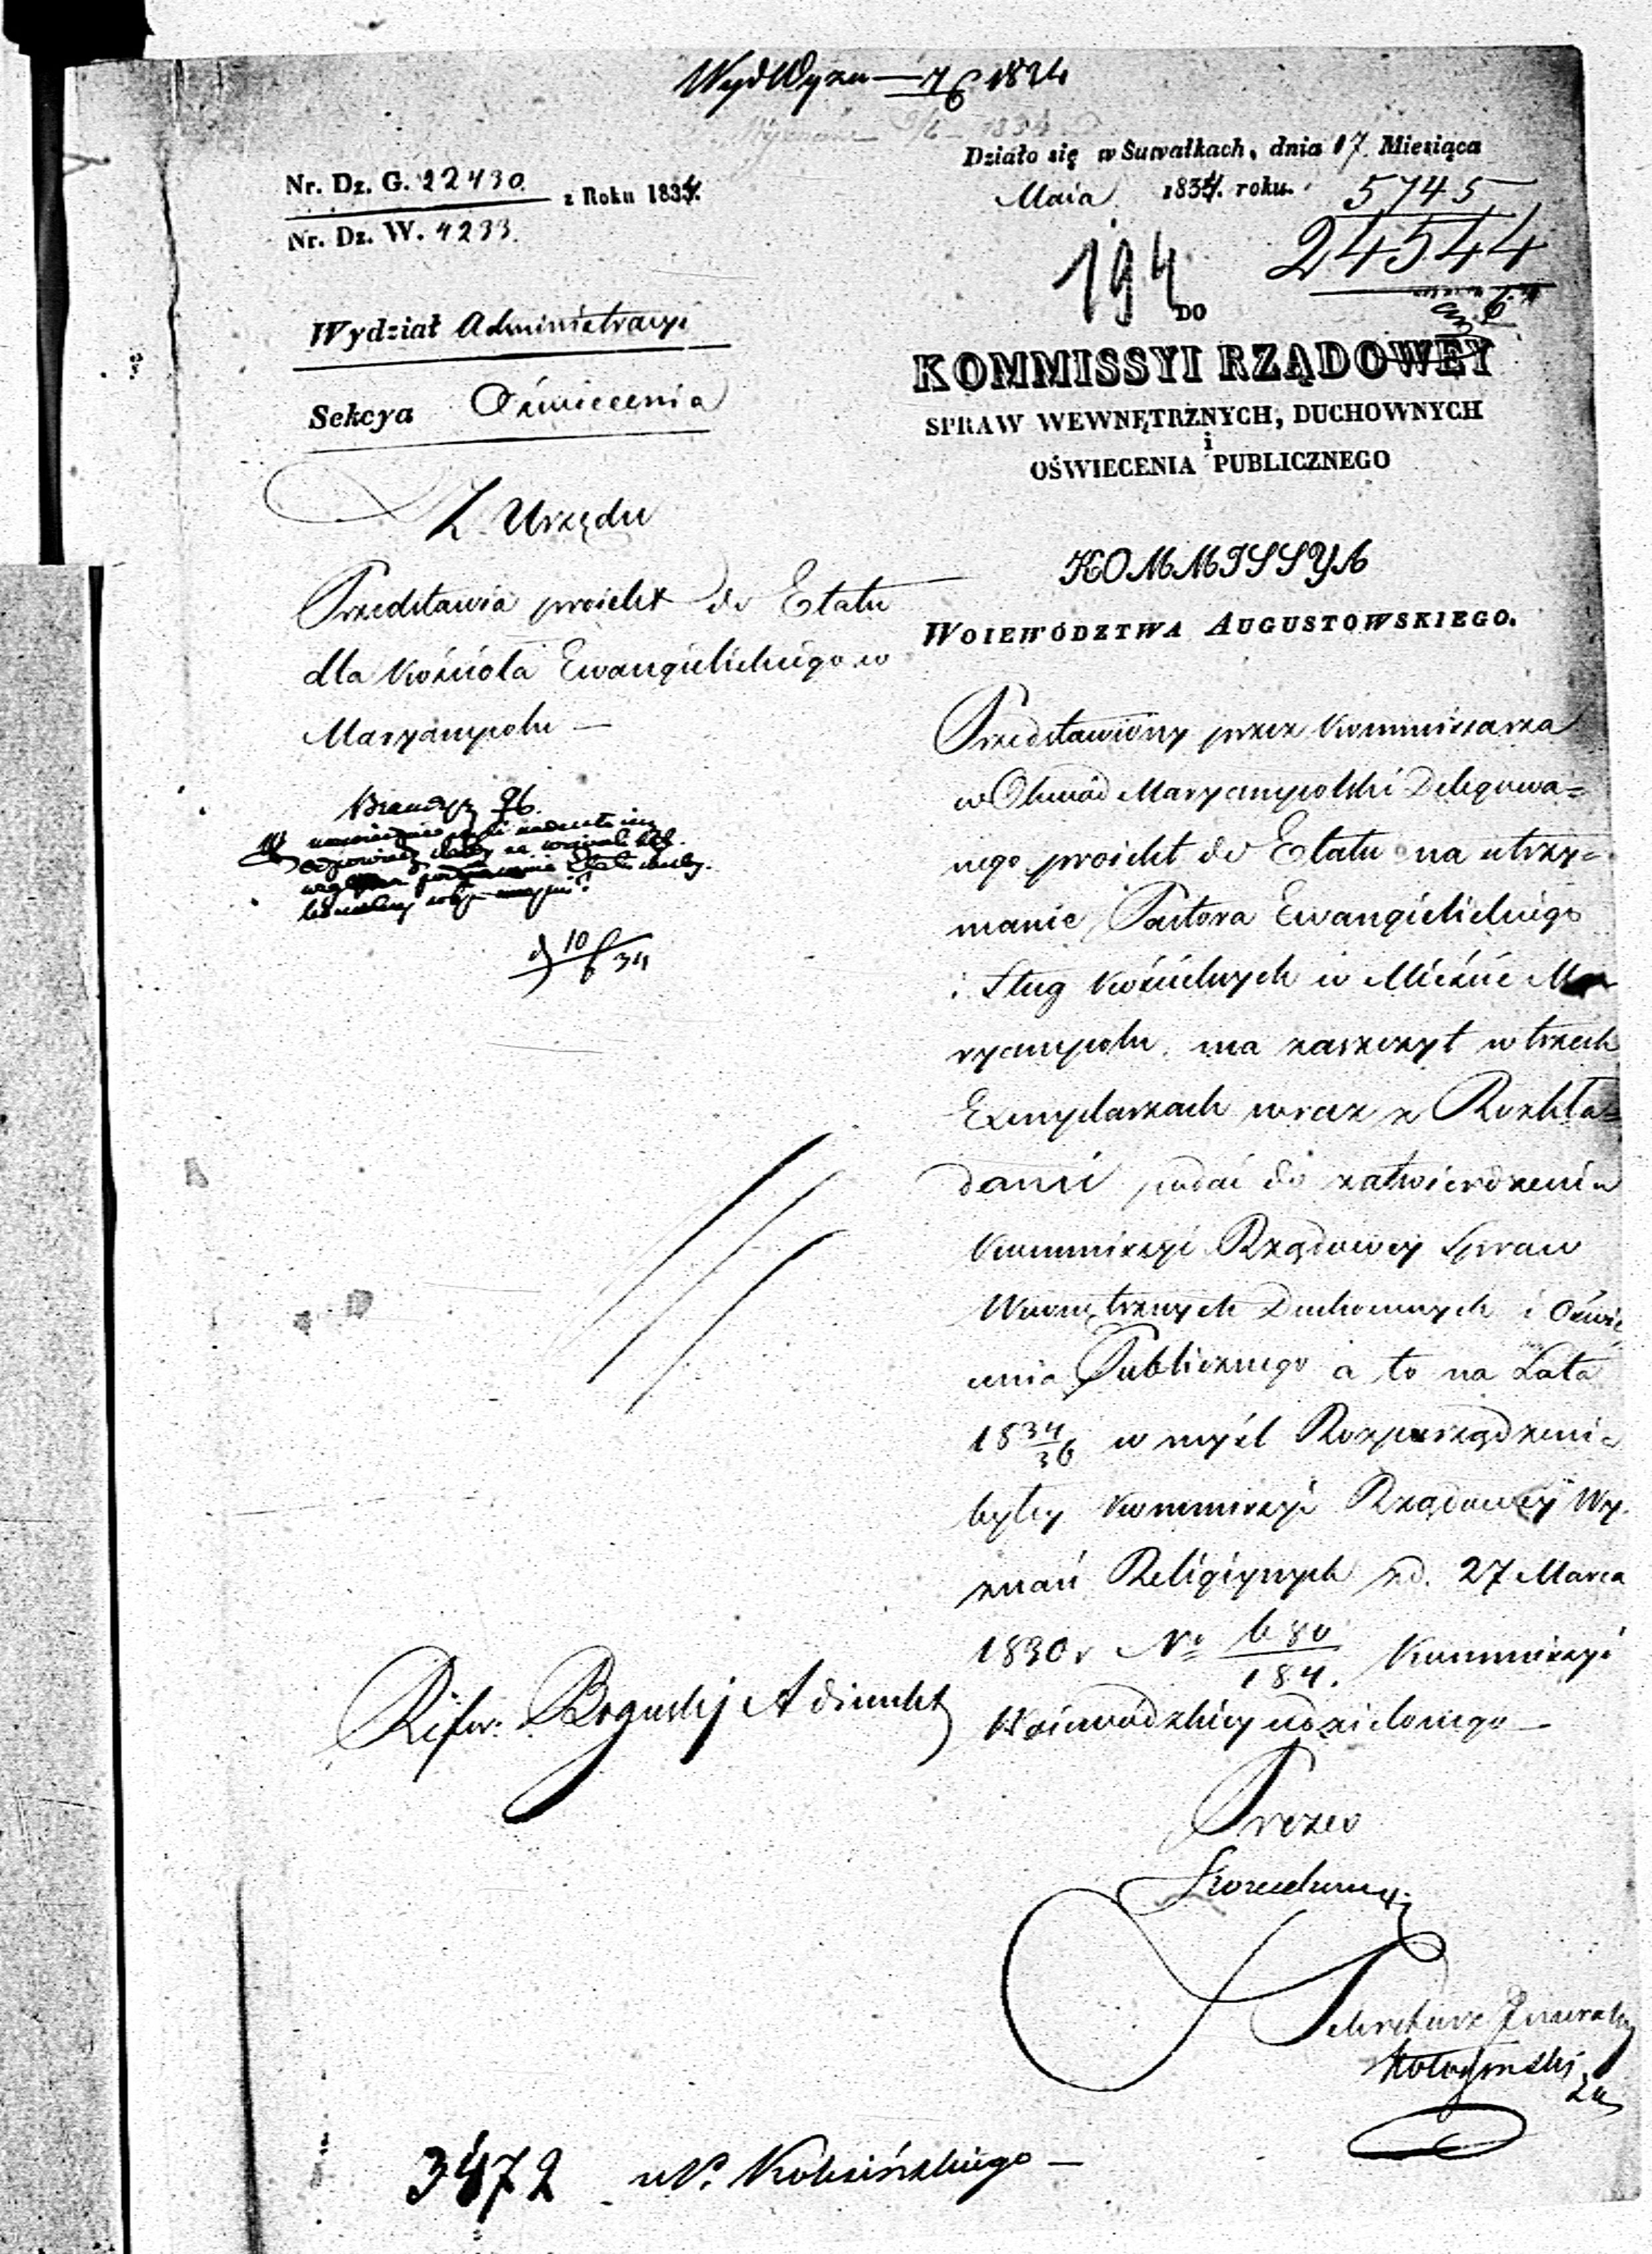 WydWyzn — 7/6 1834
Działo się w Suwałkach, dnia 17 Miesiąca
Maia 1834. roku.
Nr. Dz. G. 22430. z Roku 1834.
Nr. Dz. W. 4233.
5745
24544
194
DO
Wydział Administracyi
Sekcya Oświecenia
KOMMISSYI RZĄDOWEY
SPRAW WEWNĘTRZNYCH, DUCHOWNYCH
i
OŚWIECENIA PUBLICZNEGO
Z Urzędu
Przedstawia proiekt do Etatu
dla Kościoła Ewangielickiego w
Maryampolu —
d 10/6 34
KOMMISSYA
WOIEWÓDZTWA AUGUSTOWSKIEGO.
Przedstawiony przez Kommissarza
w Obwód Maryampolski Delegowa=
nego proiekt do Etatu na utrzy=
manie Pastora Ewangielickiego
i Sług Kościelnych w Mieście Ma
ryampolu, ma zaszczyt w trzech
Exemplarzach wraz z Rozkła=
dami podać do zatwierdzenia
Kommissyi Rządowey Spraw
Wewnętrznych Duchownych i Oświe
cenia Publicznego a to na Lata
1834/36 w myśl Rozporządzenia
byłey Kommissyi Rządowey Wy=
znań Religiynych z d. 27 Marca
1830 r No 680/184. Kommissyi
Woiewódzkiey udzielonego —
Refer: Boguski Adiunkt
Prezes
Sekretarz Jeneralny
3472 u P. Kolsińskiego —